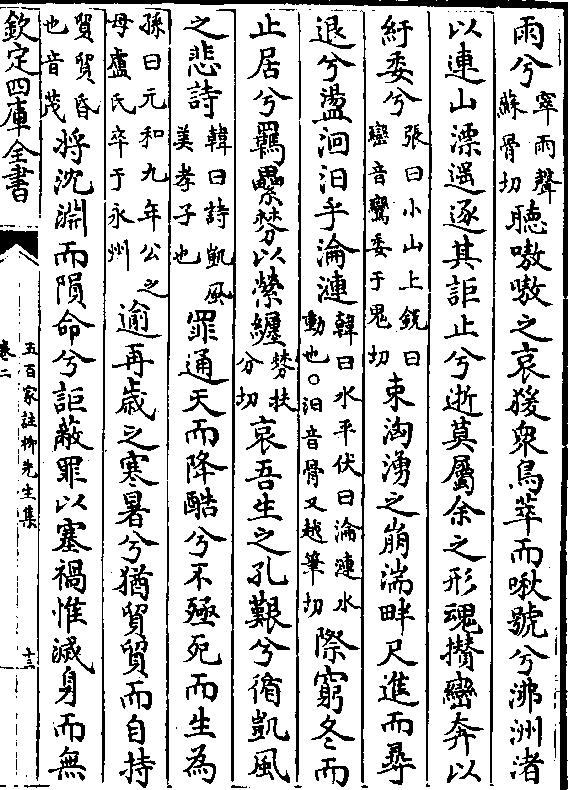 雨兮窣雨聲蘇骨切聽嗷嗷之哀猨衆鳥萃而啾號兮沸洲渚
以連山漂遥逐其詎止兮逝莫屬余之形魂攅巒奔以
紆委兮張曰小山上銳曰巒音鸞委于鬼切束洶湧之崩湍畔尺進而尋
退兮盪洄汩乎淪漣韓曰水平伏曰淪漣水動也○汩音骨又越筆切際窮冬而
止居兮羈纍棼以縈纏棼扶分切哀吾生之孔艱兮循凱風
之悲詩韓曰詩凱風美孝子也罪通天而降酷兮不殛死而生為
孫曰元和九年公之母盧氏卒于永州逾再歲之寒暑兮猶貿貿而自持
貿貿昏也音茂將沈淵而隕命兮詎蔽罪以塞禍惟滅身而無
欽定四庫全書
五百家註柳先生集
卷二
十三